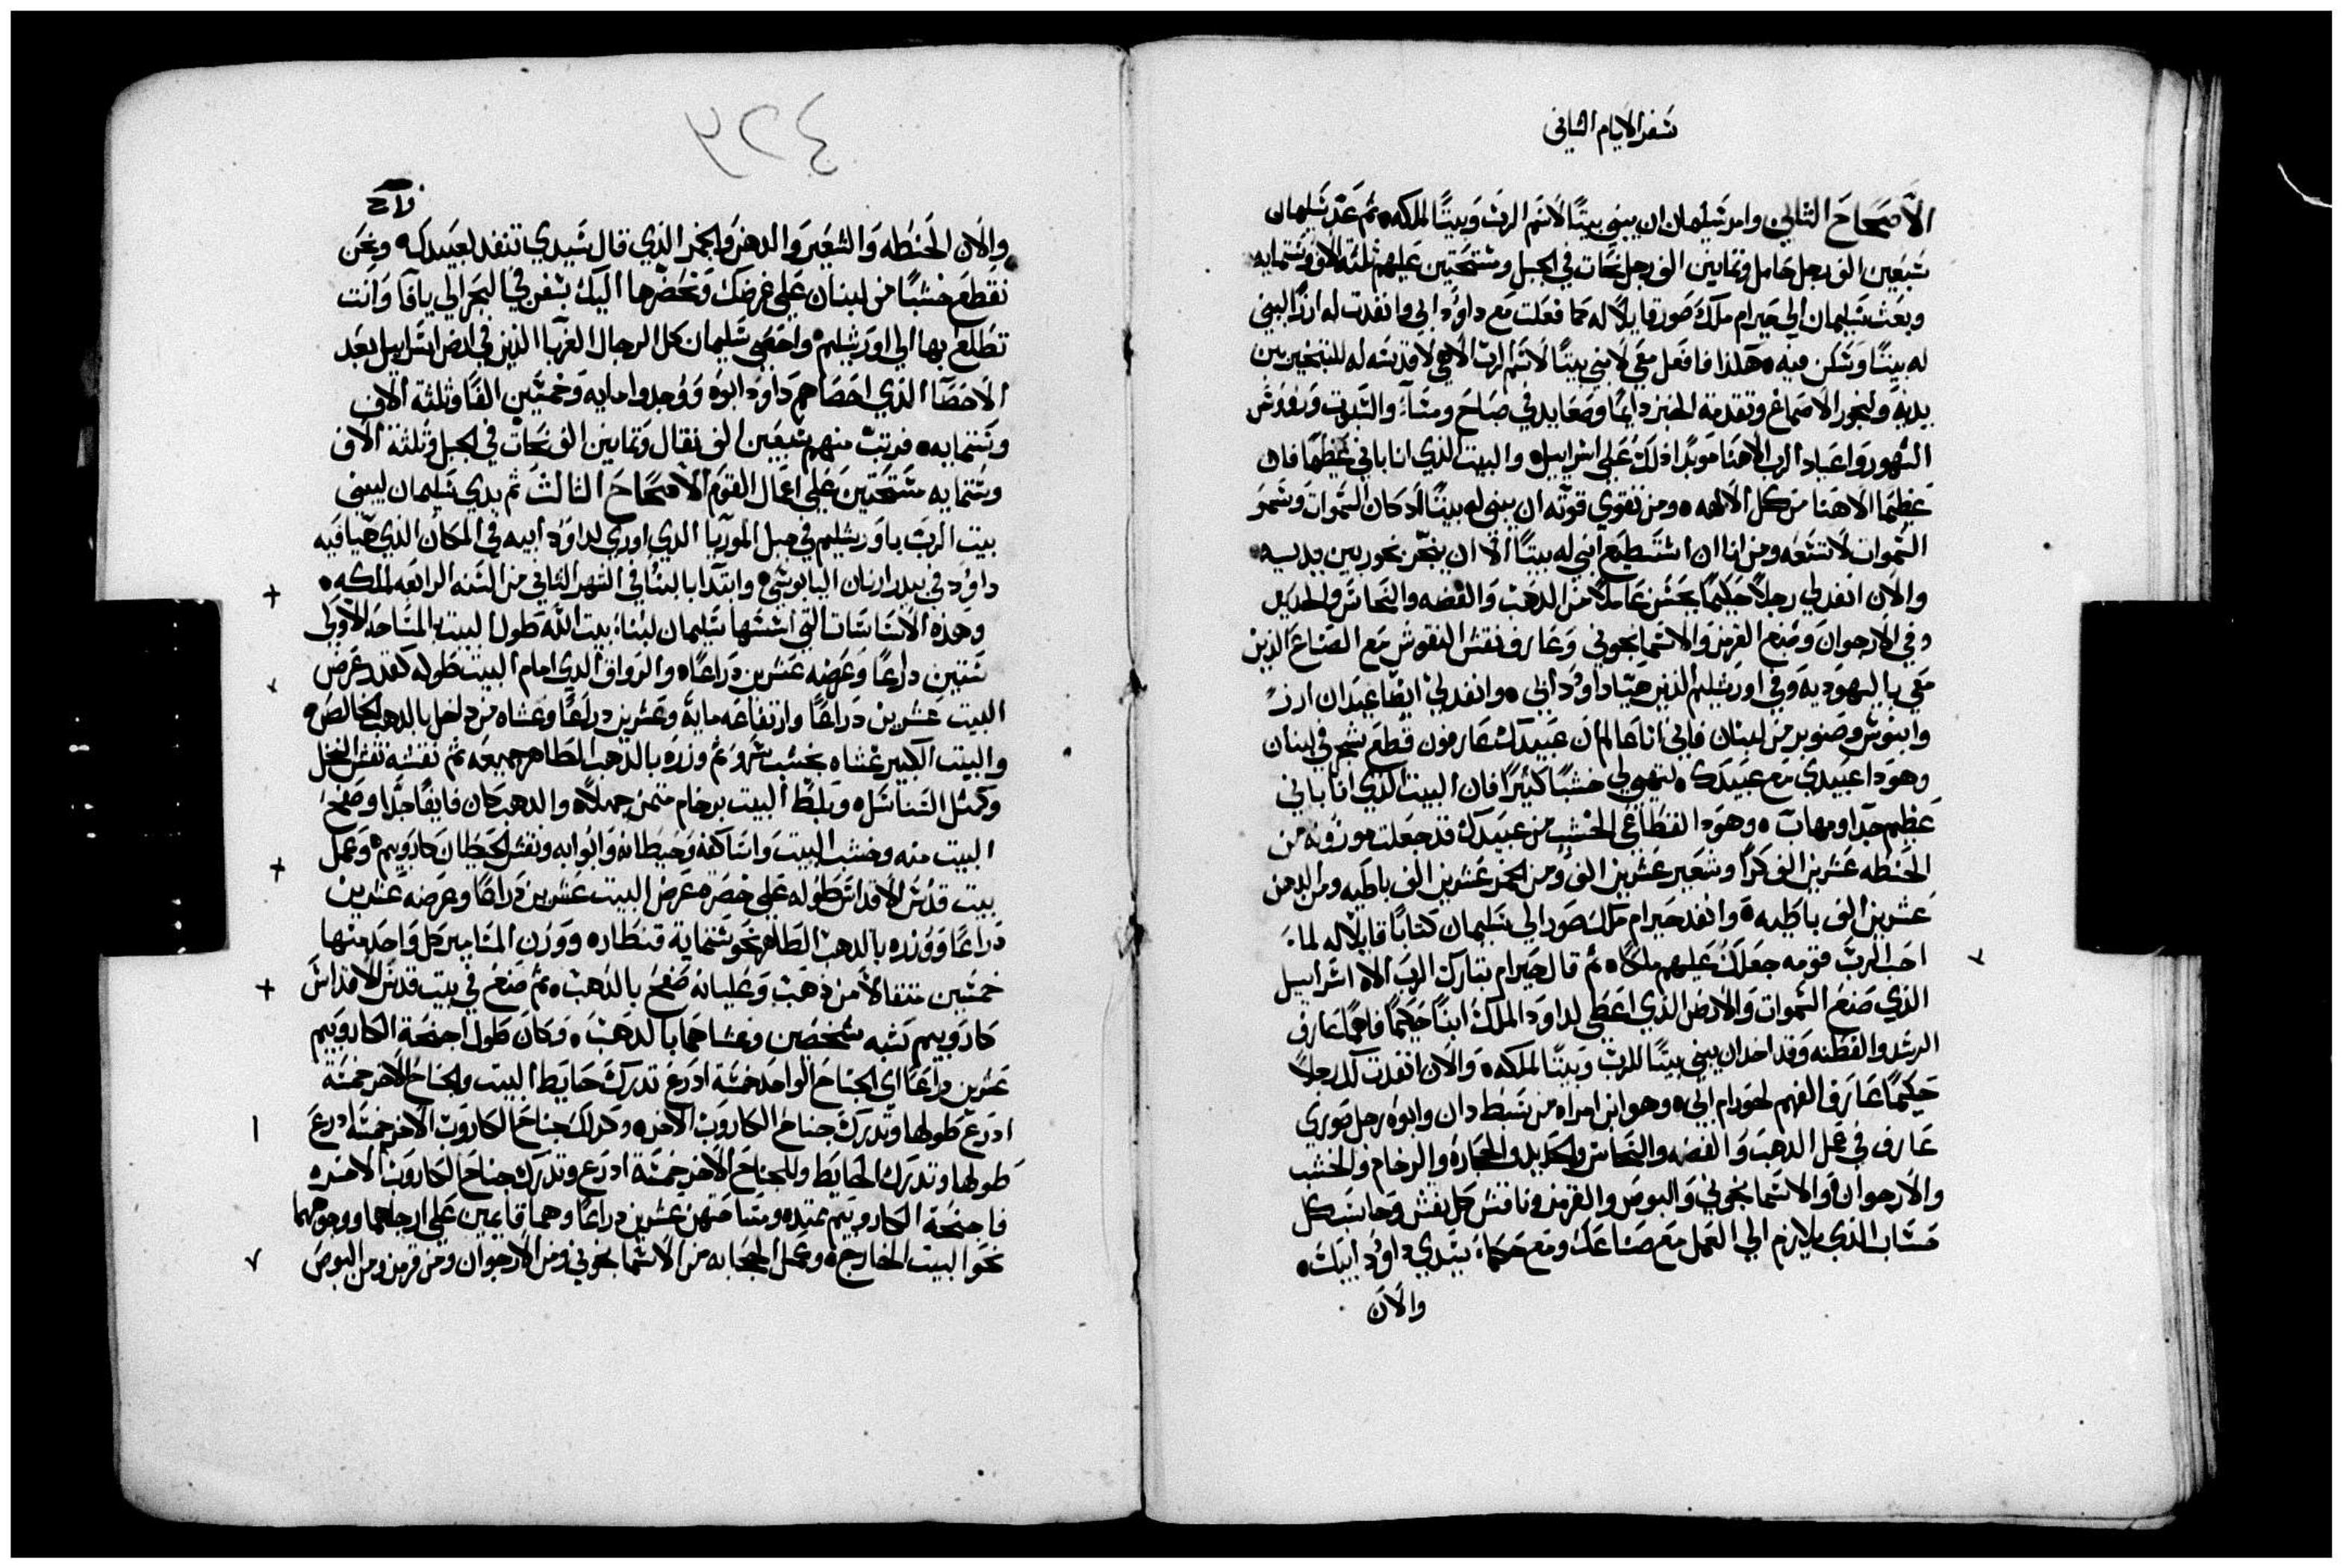 سفر الايام الثاني
الاصحاح الثاني وامر سليمان ان يبني بيتًا لاسم الرب وبيتًا لملكه ثم عد سليمان
سبعين الف رجل حامل وثمانين الف رجل نحات في الجبل ومستحتين عليهم ثلثة الاف وستمايه
وبعث سليمان الي حيرام ملك صور قايلًا له كما فعلت مع داوود ابي وانفدت له ارزًا ليبني
له بيتًا وسكن فيه هلذا فافعل معي لابني بيتًا لاسم الرب الاهي لاقدسه له للتبخير بين
يديه ولبخور الاصماغ وتقدمة الخبز دايمًا وصعايد في صباح ومساء والسبوت وروس
الشهور واعياد الرب الاهنا موبدًا ذلك علي اسراييل والبيت الذي انا باني عظيمًا فان
عظيمًا الاهنا من كل الالهه ومن تقوي قوته ان يبني له بيتًا اذ كان السموات وسمو
السموات لا تسعه ومن انا ان استطيع ابني له بيتًا الا ان يبخر بخور بين يديه
والان انفد لي رجلًا حكيمًا يحسن عاملًا من الدهب والفضه والنحاس والحديد
وفي الارجوان وصنع القرمز والاسمانجوني وعارف نقش النقوش مع الصناع الذين
معي باليهوديه وفي اورشليم الذين هيا داوود ابي وانفد لي ايضًا عيدان ارز
وابنوس وصنوبر من لبنان فاني انا عالم ان عبيدك عارفون قطع شجر في لبنان
وهودا عبيدي مع عبيدك لتهيي لي خشبًا كثيرًا فان البيت الذي انا باني
عظيم جدًا ومهاب وهودا القطاعي الخشب من عبيدك قد جعلت مونونه من
الحنطه عشرين الف كرًا وشعير عشرين الف ومن الخمر عشرين الف باطيه ومن الدهن
عشرين الف باطيه وانفد حيرام ملك صور الي سليمان كتابًا قايلًا له لما
احب الرب قومه جعلك عليهم ملكًا ثم قال حيرام تبارك الرب الاه اسراييل
الذي صنع السموات والارض الذي اعطي لداود الملك ابنًا حكيمًا فاهمًا عارف
الرشد والفطنه وقد اخد ان يبني بيتًا للرب وبيتًا لملكه والان انفدت لك رجلًا
حكيمًا عارف الفهم لحورام ابي وهو ابن امراه من سبط دان وابوه رجل صوري
عارف في عمل الدهب والفضه والنحاس والحديد والحجاره والرخام والخشب
والارجوان والاسمانجوني والبوص والقرمز وناقش كل نقش وحاسب كل
حساب الذي يلازم الي العمل مع صناعك ومع حكما سيدي داوود ابيك
والان
٤٢٣
والان الحنطه والشعير والدهن والخمر الذي قال سيدي تنفد لعبيدك ونحن
نقطع خشبًا من لبنان علي غرضك ونحضرها اليك بسفن في البحر الي يافا وانت
تطلع بها الي اورشليم واحصي سليمان كل الرجال الغربا الذين في ارض اسراييل بعد
الاحصا الذي احصاهم داوود ابوه ووجدوا مايه وخمسين الفًا وثلثة الاف
وستمايه فرتب منهم سبعين الف نقال وثمانين الف نحات في الجبل وثلثة الاف
وستمايه مستحتين علي اعمال القوم الاصحاح الثالث ثم بدي سليمان ليبني
بيت الرب باورشليم في جبل الموريا الذي اوري لداوود ابيه في المكان الذي هيا فيه
داوود في بيدر ارنان اليابوسي وابتدا بالبنا في الشهر الثاني من السنه الرابعه لملكه
وهذه الاساسات التي اسسها سليمان لبنا بيت الله طول البيت المساحه الاولي
ستين دراعًا وعرضه عشرين دراعًا والرواق الذي امام البيت طوله كقدر عرض
البيت عشرين دراعًا وارتفاعه مايه وعشرين دراعًا وغشاه من داخل بالدهب الخالص
والبيت الكبير غشاه بخشب سرو ثم وزره بالدهب الطاهر جميعه ثم نقشه نقش النخل
وكمثل السناسل وبلط البيت برخام متمن جملًا والدهب كان فايقًا جدًا وصفح
البيت منه وخشب البيت واساكفه وحيطانه وابوابه ونقش الحيطان كاروبيم وعمل
بيت قدس الاقداس طوله علي حصره عرض البيت عشرين دراعًا وعرضه عشرين
دراعًا ووزره بالدهب الطاهر نحو ستماية قنطار ووزن المسامير كل واحد منها
خمسين متقالًا من ذهب وعليانه صفح بالدهب ثم صنع في بيت قدس الاقداس
كاروبيم شبه شخصين وغشاهما بالدهب وكان طول اجنحة الكاروبيم
عشرين دراعًا اي الجناح الواحد خمسة ادرع تدرك حايط البيت والجناح الاخر خمسة
ادرع طولها وتدرك جناح الكاروب الاخر وكدلك جناح الكاروب الاخر خمسة ادرع
طولها وتدرك الحايط وللجناح الاخر خمسة ادرع وتدرك جناح الكاروب الاخر
فاجنحة الكاروبيم ممتده ومساحتهن عشرين دراعًا وهما قايمين علي ارجلهما ووجوههما
نحو البيت الخارج وعمل الحجابه من الاسمانجوني ومن الارجوان ومن قرمز ومن البوص